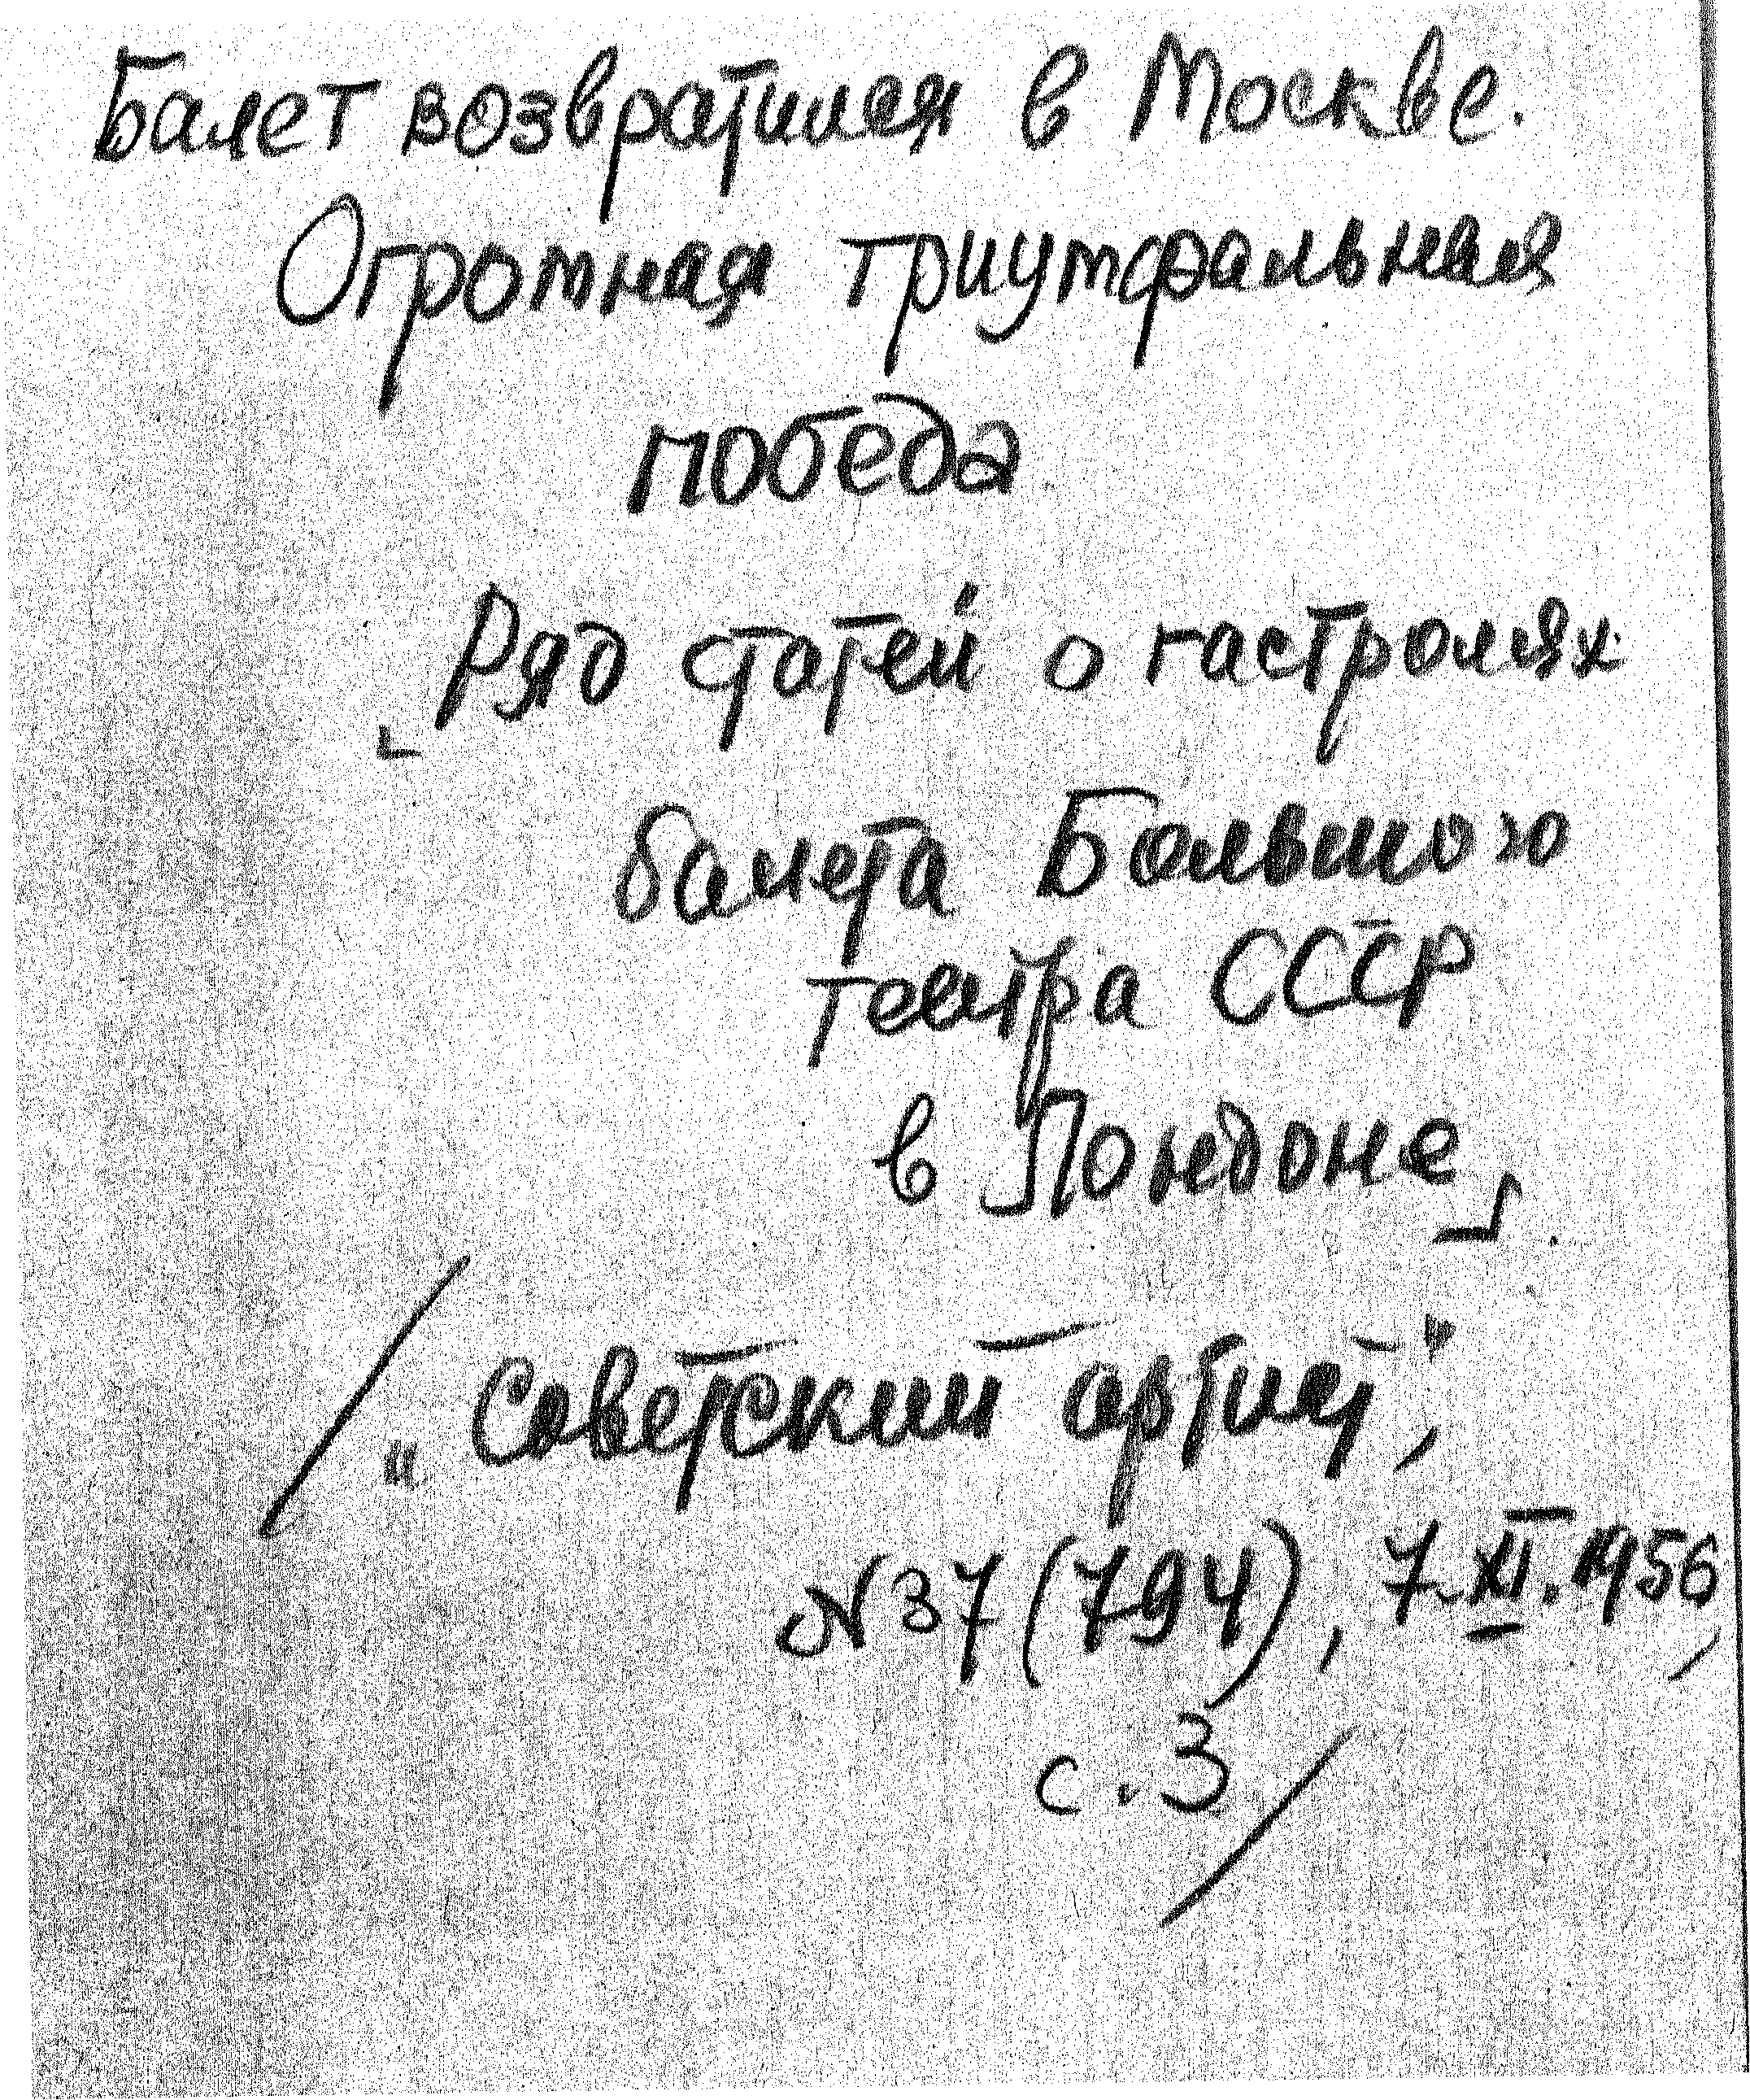 Балет возвратился в Москве.
Огромная триумфальная
победа
[Ряд статей о гастролях
балета Большого
театра СССР
в Лондоне].
/„Советский артист”,
№37(794), 7.XI.1956,
с.3/